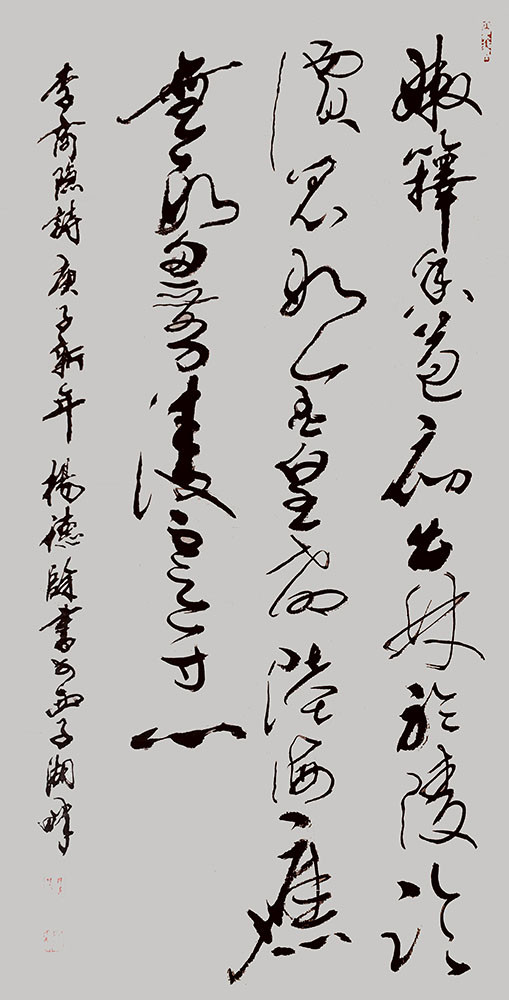 嫩籜香苞初出林於陵論
價重如金皇都陸海應
無數忍剪凌雲一寸心
李商隱詩庚子新年楊德書於西子湖畔